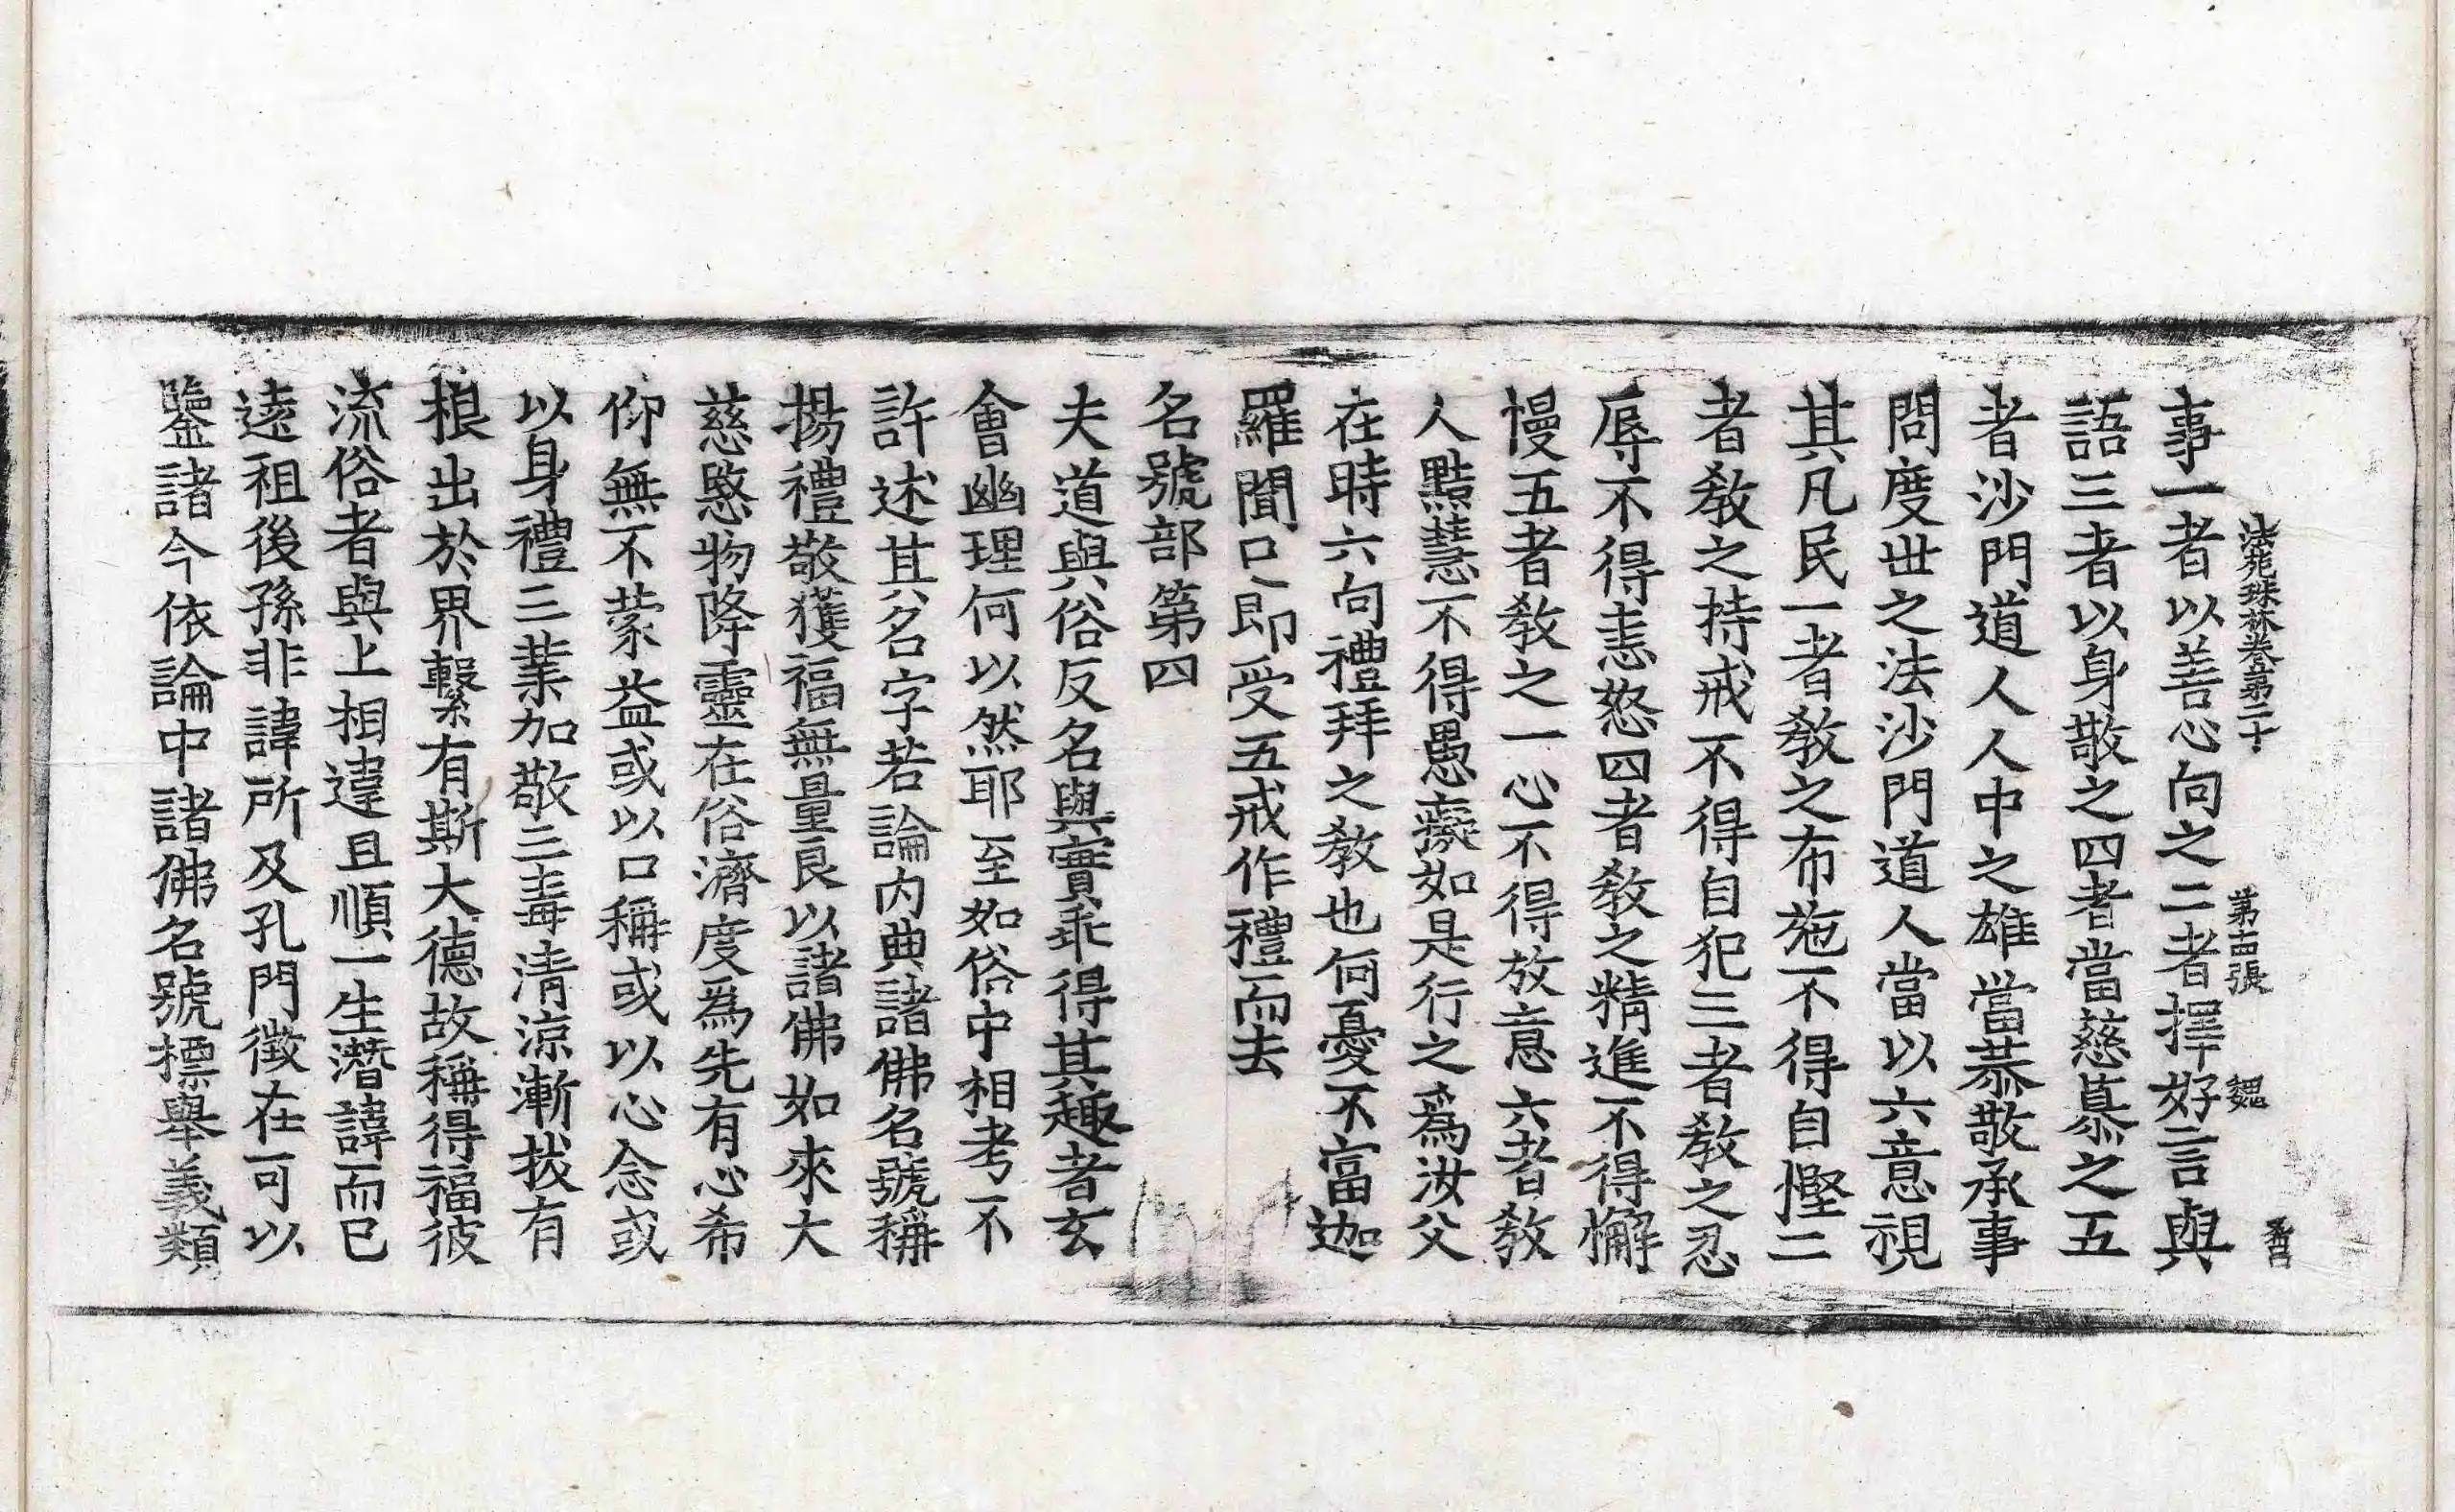 法苑珠林卷第二十 第十四張 魏
事一者以善心向之二者擇好言與
語三者以身敬之四者當慈慕之五
者沙門道人人中之雄當恭敬承事
問度世之法沙門道人當以六意視
其凡民一者教之布施不得自慳二
者教之持戒不得自犯三者教之忍
辱不得恚怒四者教之精進不得懈
慢五者教之一心不得放意六者教
人黠慧不得愚癡如是行之爲汝父
在時六向禮拜之教也何憂不富迦
羅聞已即受五戒作禮而去
名號部第四
夫道與俗反名與實乖得其趣者玄
會幽理何以然耶至如俗中相考不
許述其名字若論內典諸佛名號稱
揚禮敬獲福無量良以諸佛如來大
慈愍物降靈在俗濟度爲先有心希
仰無不蒙益或以口稱或以心念或
以身禮三業加敬三毒清涼漸拔有
根出於界繫有斯大德故稱得福彼
流俗者與上相違且順一生潛諱而已
遠祖後孫非諱所及孔門徵在可以
鑒諸今依論中諸佛名號標舉義類